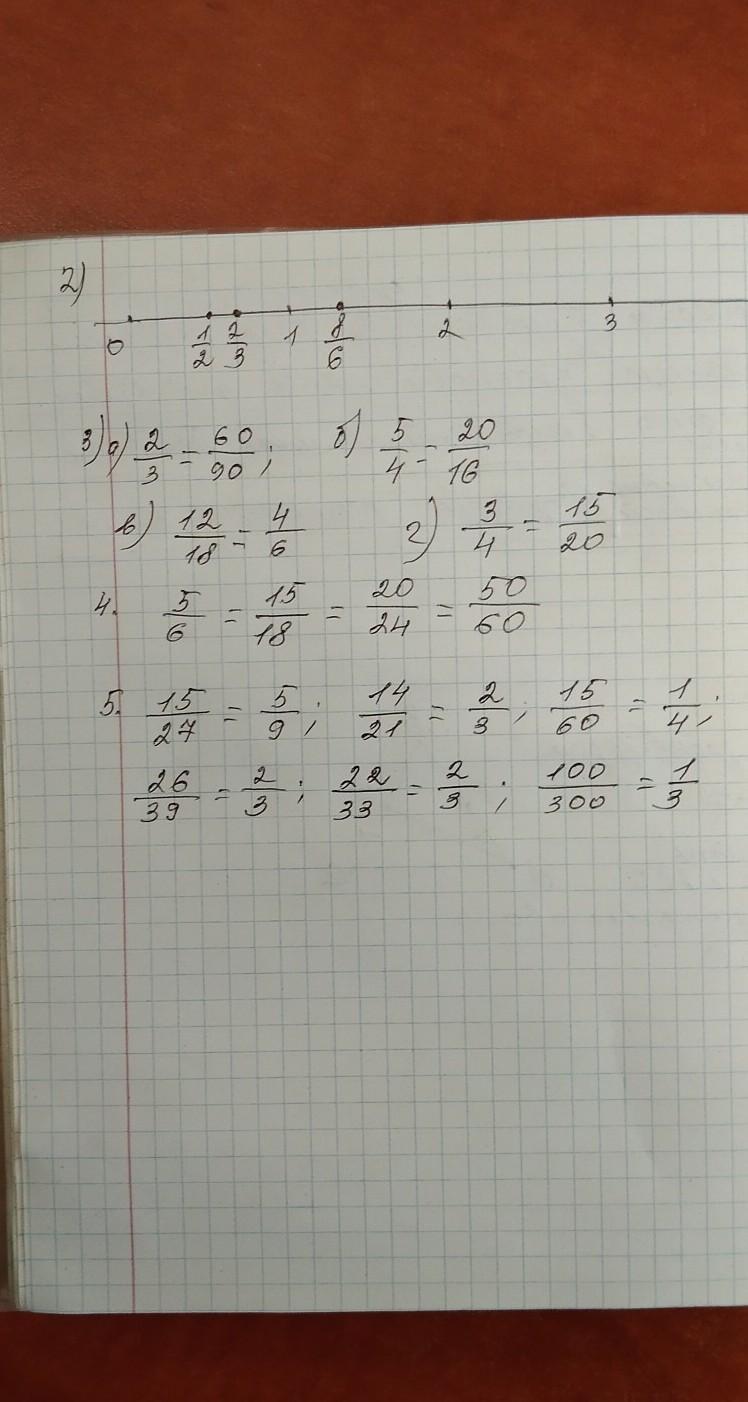 2)
0 1/2 2/3 1 8/6 2 3
3) а) 2/3 = 60/90; б) 5/4 = 20/16
в) 12/18 = 4/6 г) 3/4 = 15/20
4. 5/6 = 15/18 = 20/24 = 50/60
5. 15/27 = 5/9; 14/21 = 2/3; 15/60 = 1/4;
26/39 = 2/3; 22/33 = 2/3; 100/300 = 1/3